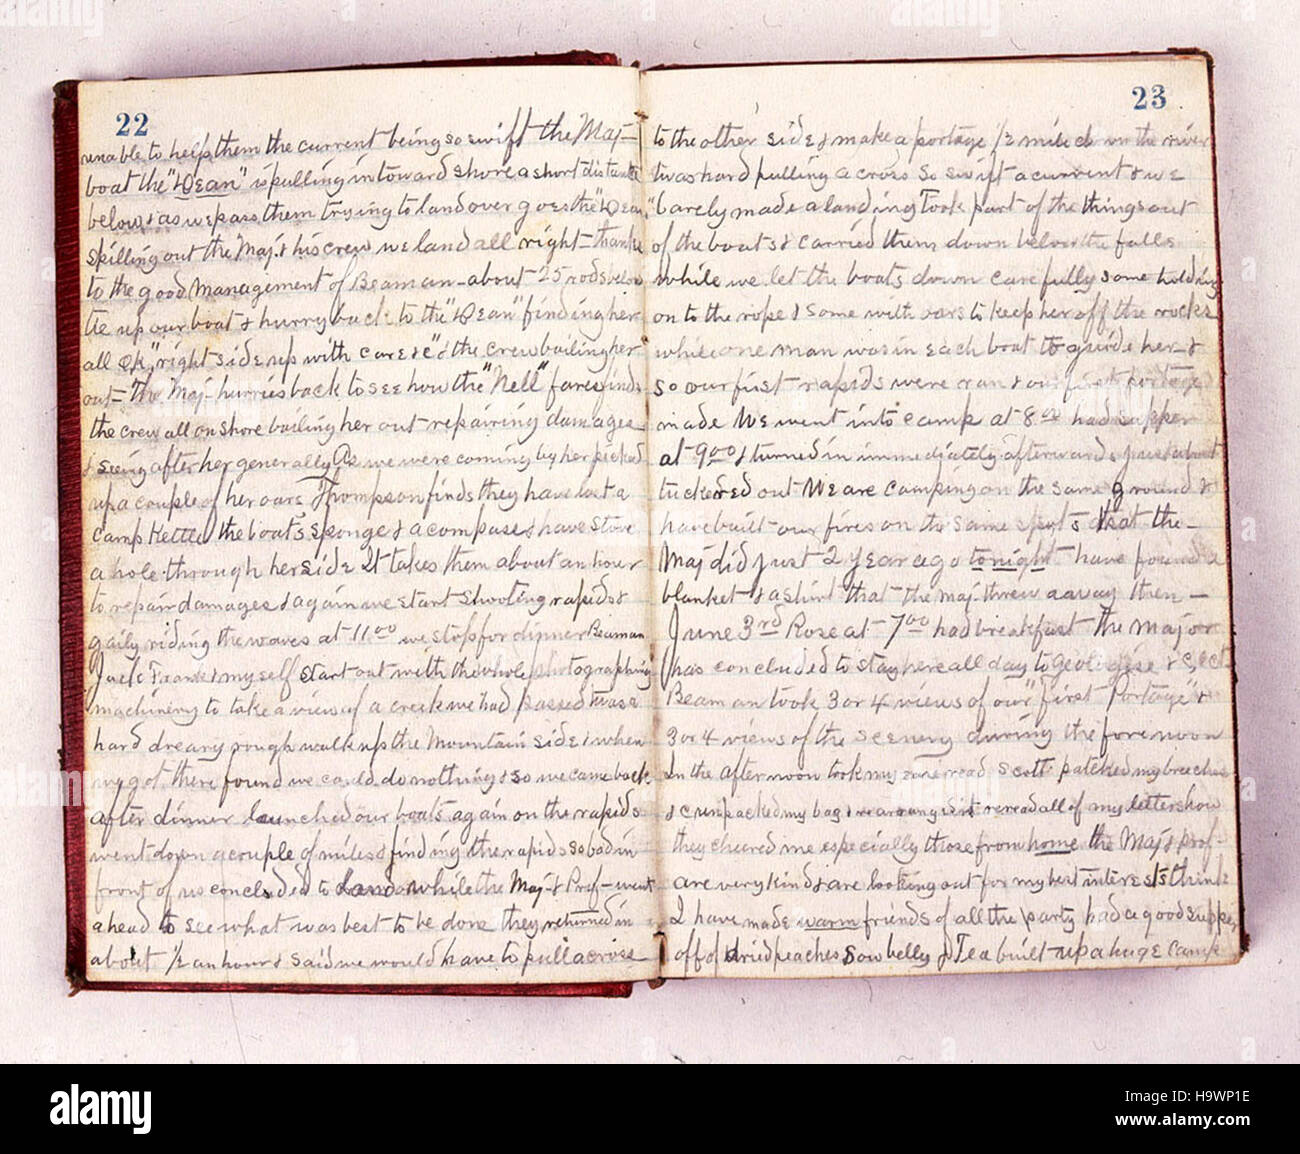 22
unable to help them the current being so swift the Maj—
boat the "Dean" is pulling in toward shore a short distance
below & as we pass them trying to land over goes the "Dean"
spilling out the Maj. & his crew we land all right — thanks
to the good management of Beaman — about 25 rods below
tie up our boat & hurry back to the "Dean" finding her
all OK, "right side up with care &c" & the crew bailing her
out — The Maj— hurries back to see how the "Nell" fares finds
the crew all on shore bailing her out — repairing damages
& seeing after her generally As we were coming by her picked
up a couple of her oars Thompson finds they have lost a
camp Kettle the boat's sponge & a compass & have stove
a hole through her side It takes them about an hour
to repair damages & again we start shooting rapids &
gaily riding the waves at 11 00 we stop for dinner Beaman
Jack Frank & myself start out with the whole photographing
machinery to take a view of a creek we had passed twas a
hard dreary rough walk up the Mountain side & when
we got there found we could do nothing & so we came back
after dinner launched our boats again on the rapids
went down a couple of miles & finding the rapids so bad in
front of us concluded to land while the Maj— & Prof— went
ahead to see what was best to be done they returned in
about 1/2 an hour & said we would have to pull across
23
to the other side & make a portage 1/2 mile down the river
twas hard pulling across so swift a current & we
barely made a landing Took part of the things out
of the boats & carried them down below the falls
while we let the boats down carefully some holding
on to the rope & some with oars to keep her off the rocks
while one man was in each boat to guide her &
so our first rapids were ran & our first portage
made We went into camp at 8 00 had supper
at 9 00 & turned in immediately afterwards just about
tuckered out We are camping on the same ground &
have built our fires on the same spots that the
Maj did just 2 year ago tonight have found a
blanket & a shirt that the maj— threw away then —
June 3rd Rose at 7 00 had breakfast the Major
has concluded to stay here all day to Geologise &c &c
Beaman took 3 or 4 views of our "first Portage" &
3 or 4 views of the scenery during the forenoon
In the afternoon took my ease read Scott patched my breeches
& unpacked my bag & rearranged it reread all of my letters how
they cheered me especially those from home the Maj & prof—
are very kind & are looking out for my best interests think
I have made warm friends of all the party had a good supper
off of dried peaches Sow belly & Tea built up a huge camp
alamy
H9WP1E
www.alamy.com